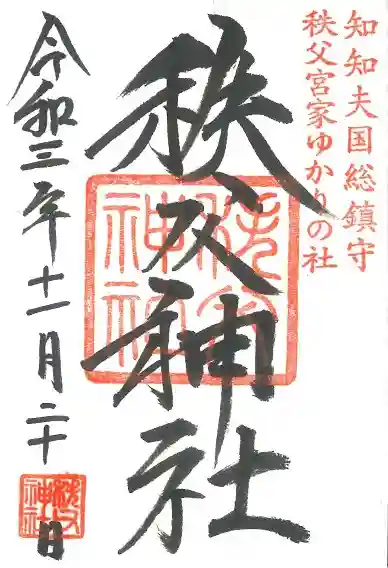 知知夫国総鎮守
秩父宮家ゆかりの社
秩父神社
秩父神社
令和三年十一月二十日
秩父神社